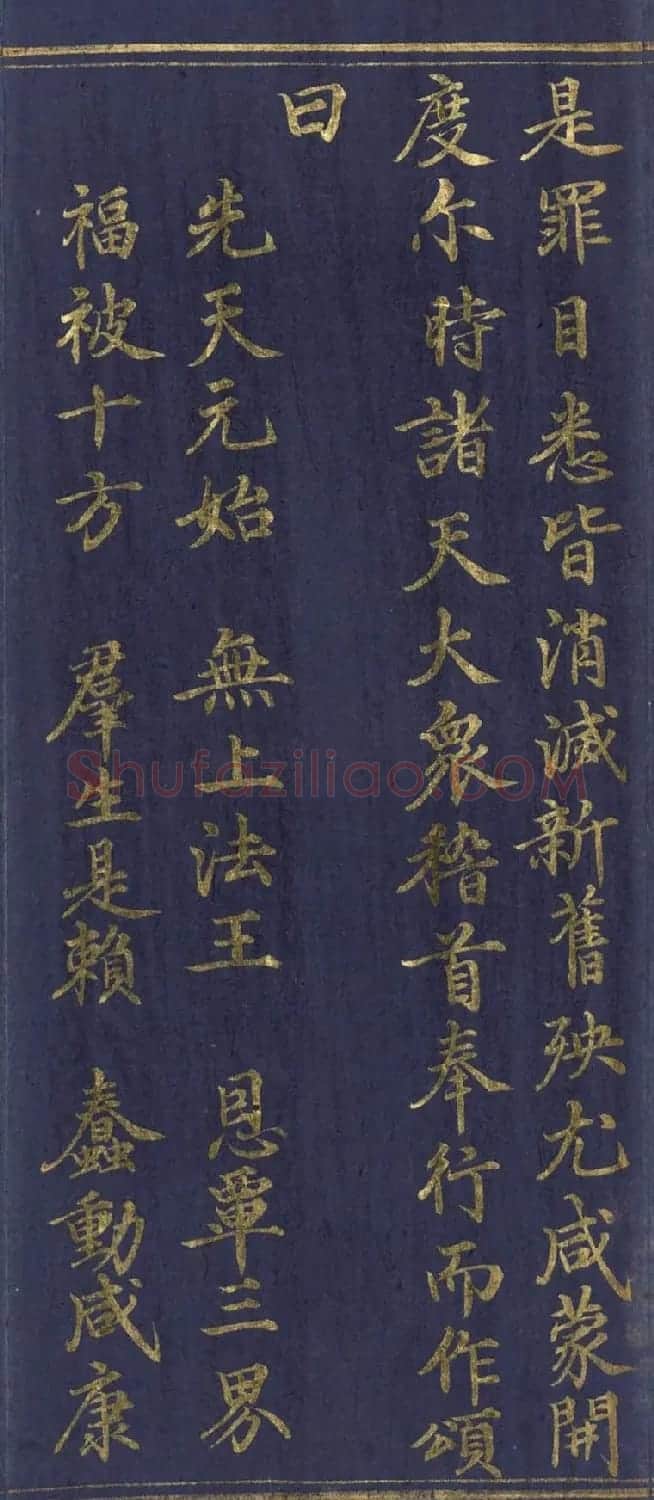 是罪目悉皆消滅新舊殃尤咸蒙開
度尔時諸天大衆稽首奉行而作頌
曰
先天元始 無上法王 恩覃三界
福被十方 羣生是賴 蠢動咸康
Shufaziliao.COM